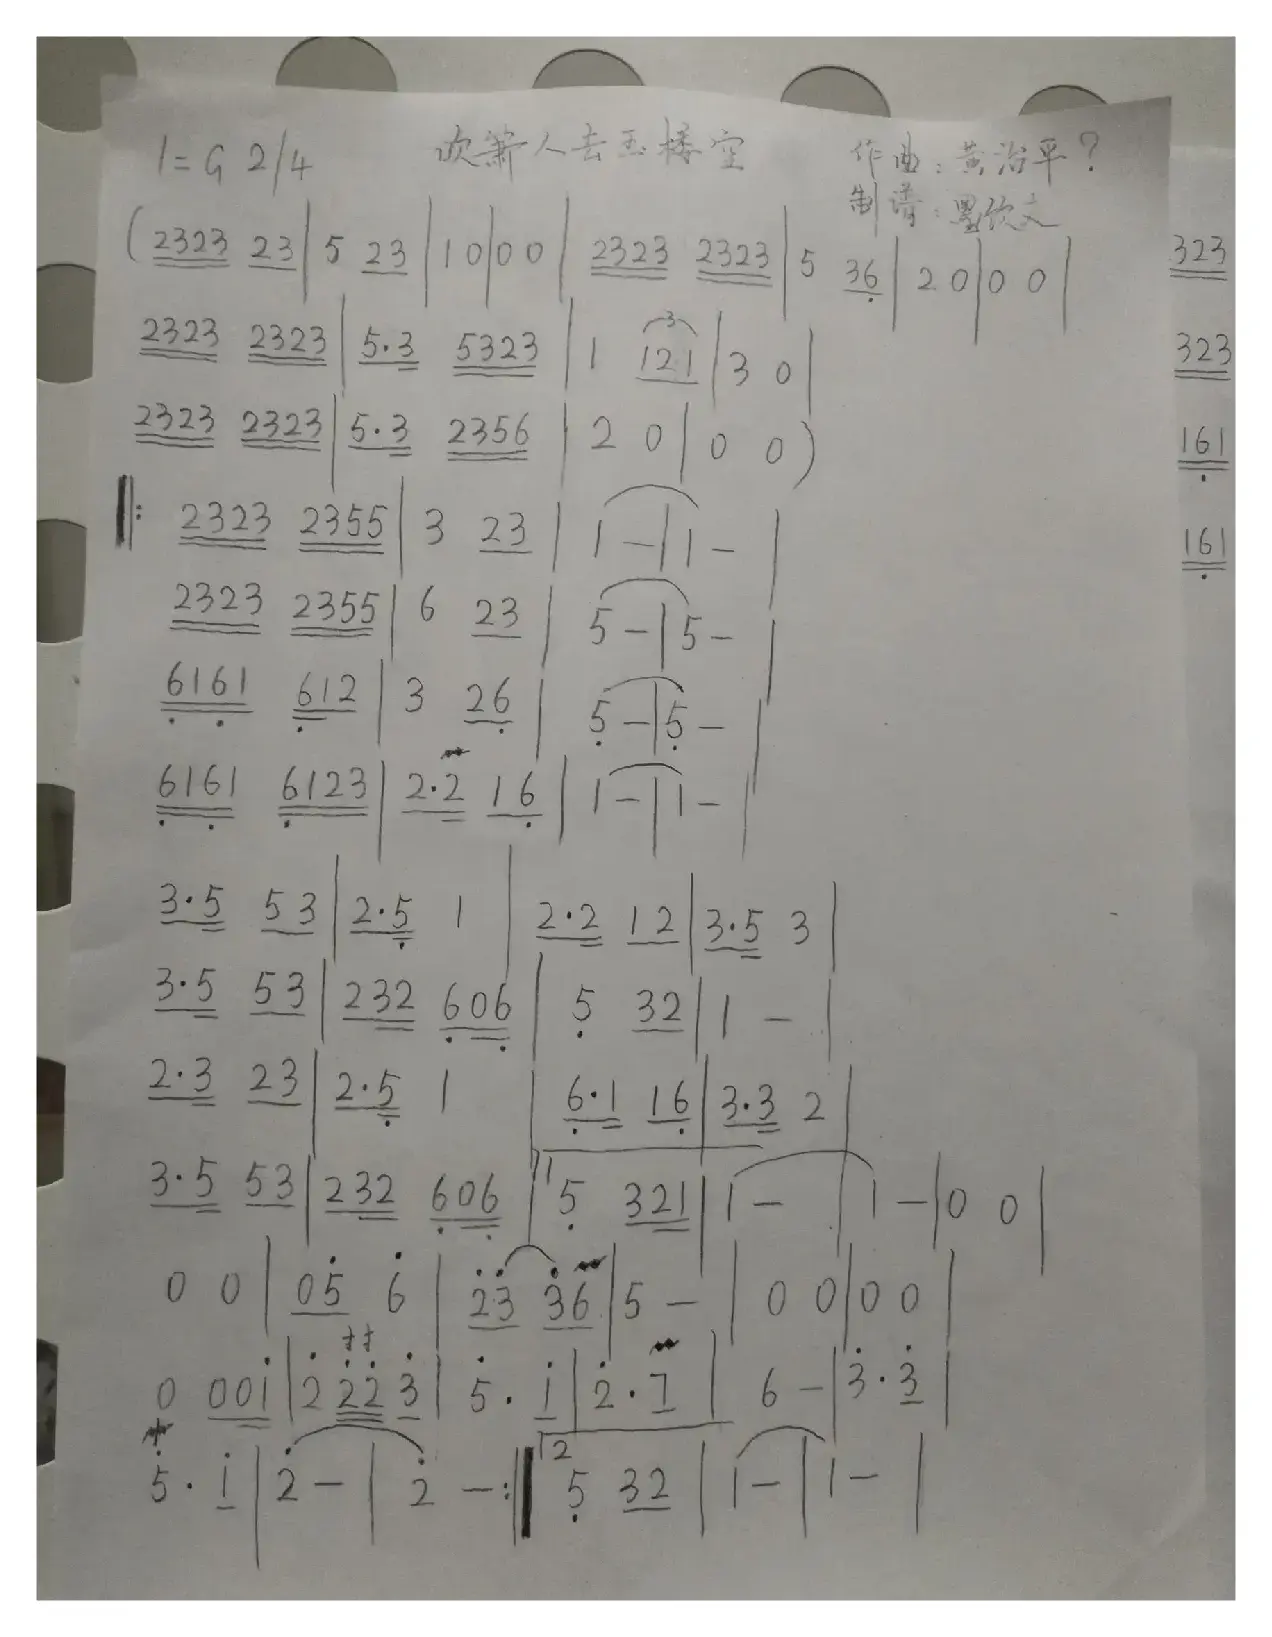 1=G 2/4 吹箫人去玉楼空 作曲:黄治平?
制谱:墨饮文
(2323 23|5 23|10|00|2323 2323|5 36|20|00|
2323 2323|5·3 5323|1 121|3 0|
2323 2323|5·3 2356|2 0|0 0)
‖: 2323 2355|3 23|1 -|1 -|
2323 2355|6 23|5 -|5 -|
6161 612|3 26|5 -|5 -|
6161 6123|2·2 16|1 -|1 -|
3·5 53|2·5 1|2·2 12|3·5 3|
3·5 53|232 606|5 32|1 -|
2·3 23|2·5 1|6·1 16|3·3 2|
3·5 53|232 606|1 5 321|1 -|1 -|0 0|
0 0|05 6|23 36|5 -|0 0|0 0|
0 001|2 22 3|5· 1|2· 7|6 -|3·3|
5· 1|2 -|2 -:‖ 2 5 32|1 -|1 -|
323
323
161
161